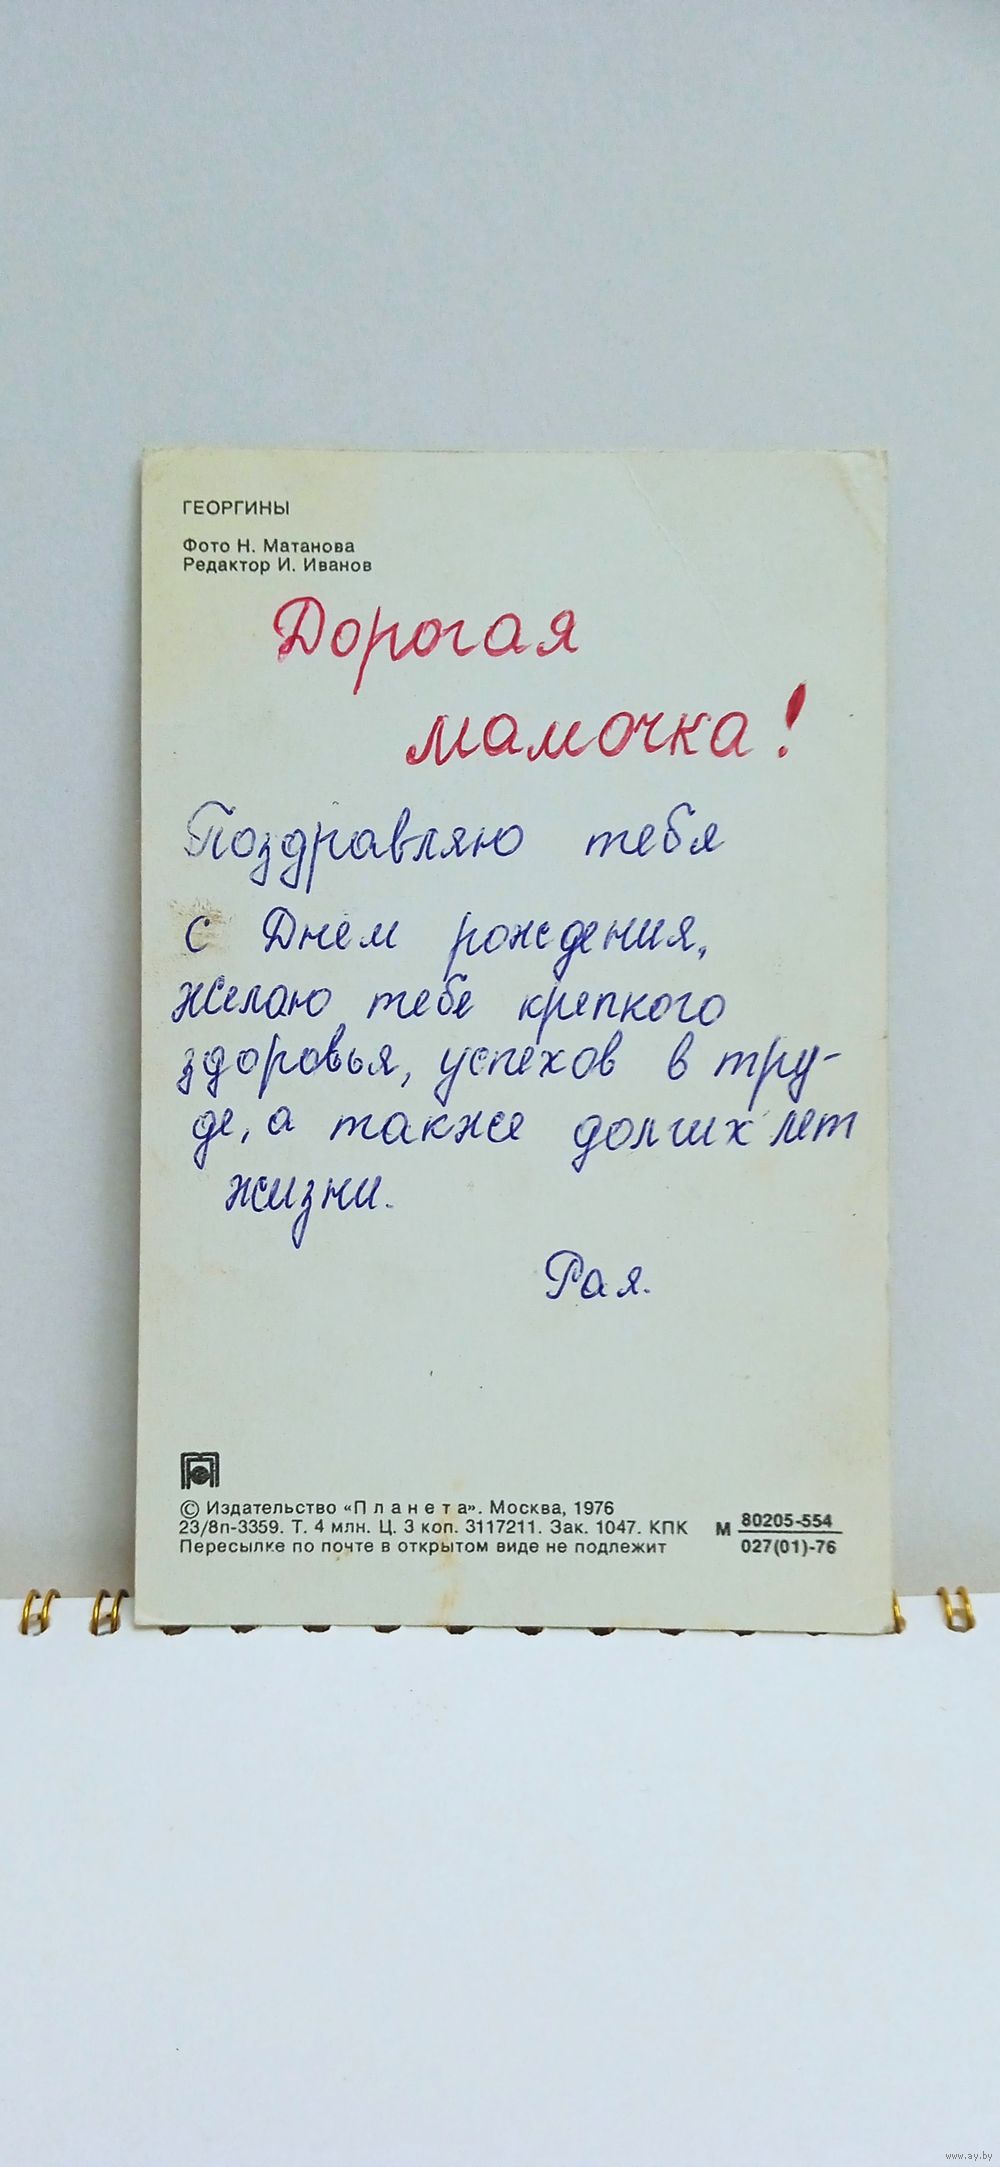 ГЕОРГИНЫ
Фото Н. Матанова
Редактор И. Иванов
Дорогая
мамочка!
Поздравляю тебя
с Днем рождения,
желаю тебе крепкого
здоровья, успехов в тру-
де, а также долгих лет
жизни.
Рая.
© Издательство «Планета». Москва, 1976
23/8п-3359. Т. 4 млн. Ц. 3 коп. 3117211. Зак. 1047. КПК
Пересылке по почте в открытом виде не подлежит
М 80205-554
027(01)-76
www.ay.by